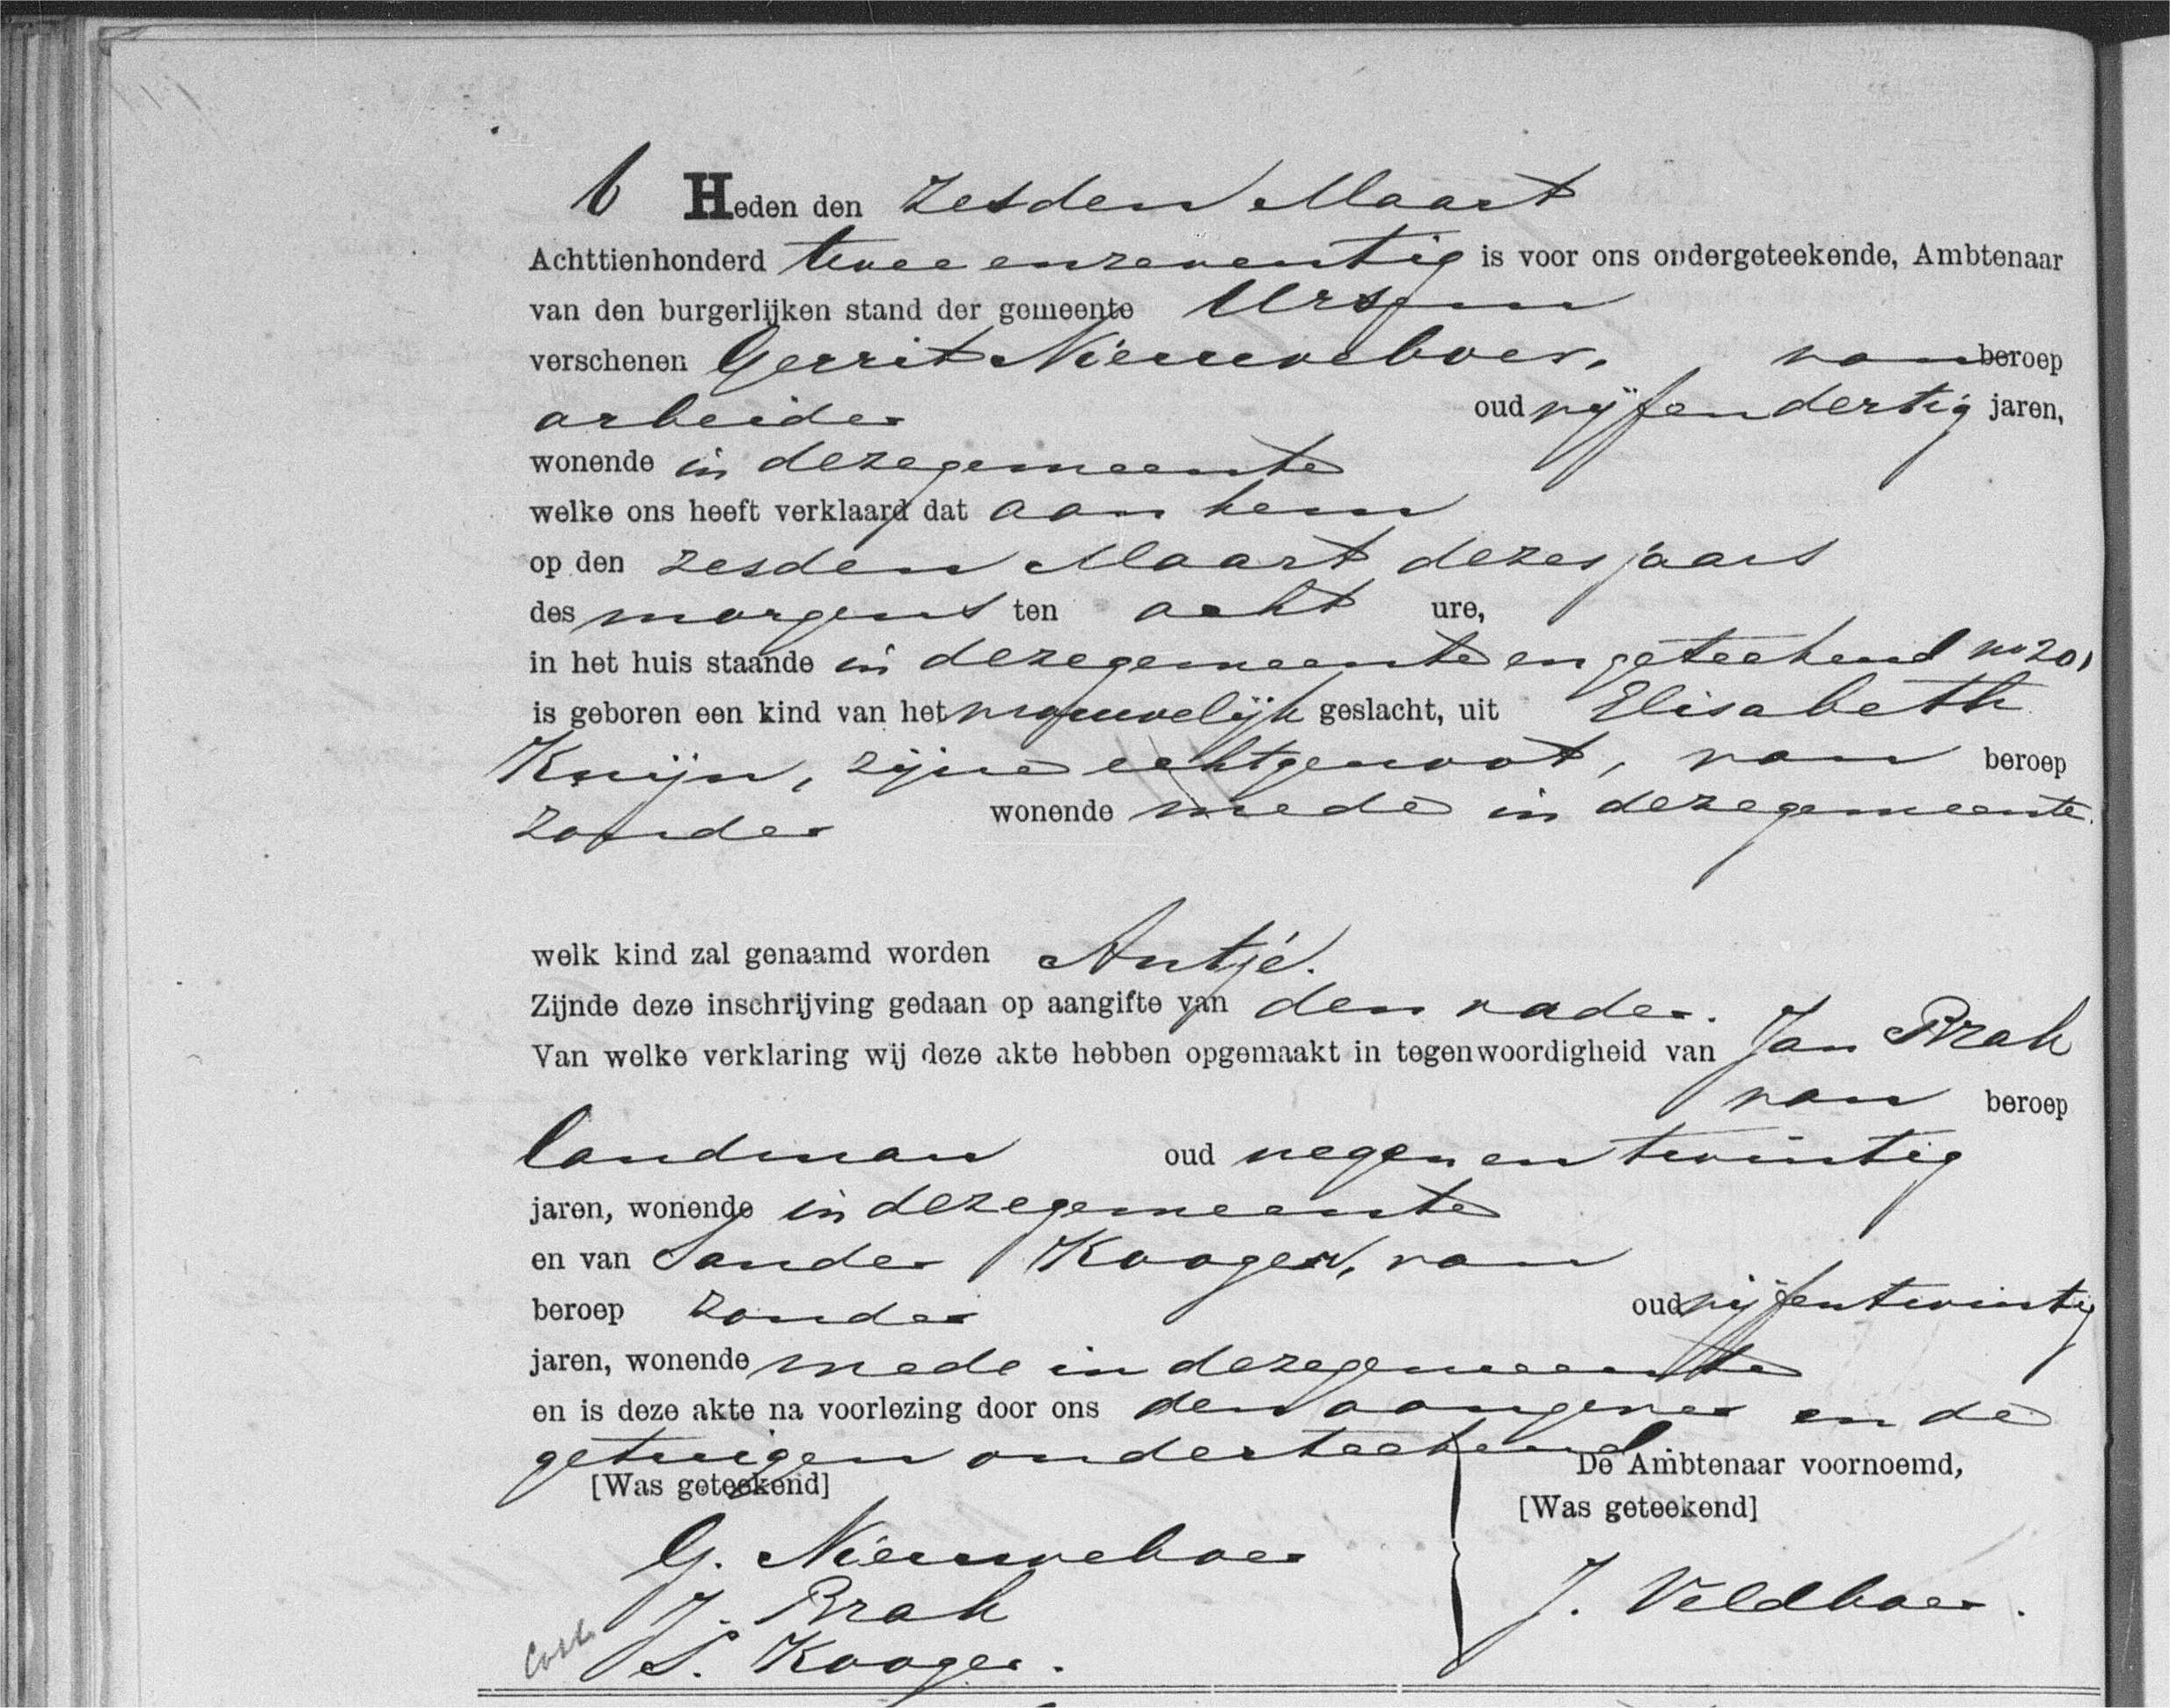 6 Heden den zesden Maart
Achttienhonderd twee en zeventig is voor ons ondergeteekende, Ambtenaar
van den burgerlijken stand der gemeente Ursem
verschenen Gerrit Nieuweboer, van beroep
arbeider oud vijf en dertig jaren,
wonende in deze gemeente
welke ons heeft verklaard dat aan hem
op den zesden Maart dezes jaars
des morgens ten acht ure,
in het huis staande in deze gemeente en geteekend no 20,
is geboren een kind van het vrouwelijk geslacht, uit Elisabeth
Knijn, zijne echtgenoot, van beroep
zonder wonende mede in deze gemeente.
welk kind zal genaamd worden Antje.
Zijnde deze inschrijving gedaan op aangifte van den vader.
Van welke verklaring wij deze akte hebben opgemaakt in tegenwoordigheid van Jan Brak
van beroep
landman oud negen en twintig
jaren, wonende in deze gemeente
en van Sander Kooger, van
beroep zonder oud vijf en twintig
jaren, wonende mede in deze gemeente
en is deze akte na voorlezing door ons den aangever en de
getuigen onderteekend
[Was geteekend] De Ambtenaar voornoemd,
[Was geteekend]
G. Nieuweboer
J. Brak J. Veldboer.
S. Kooger.